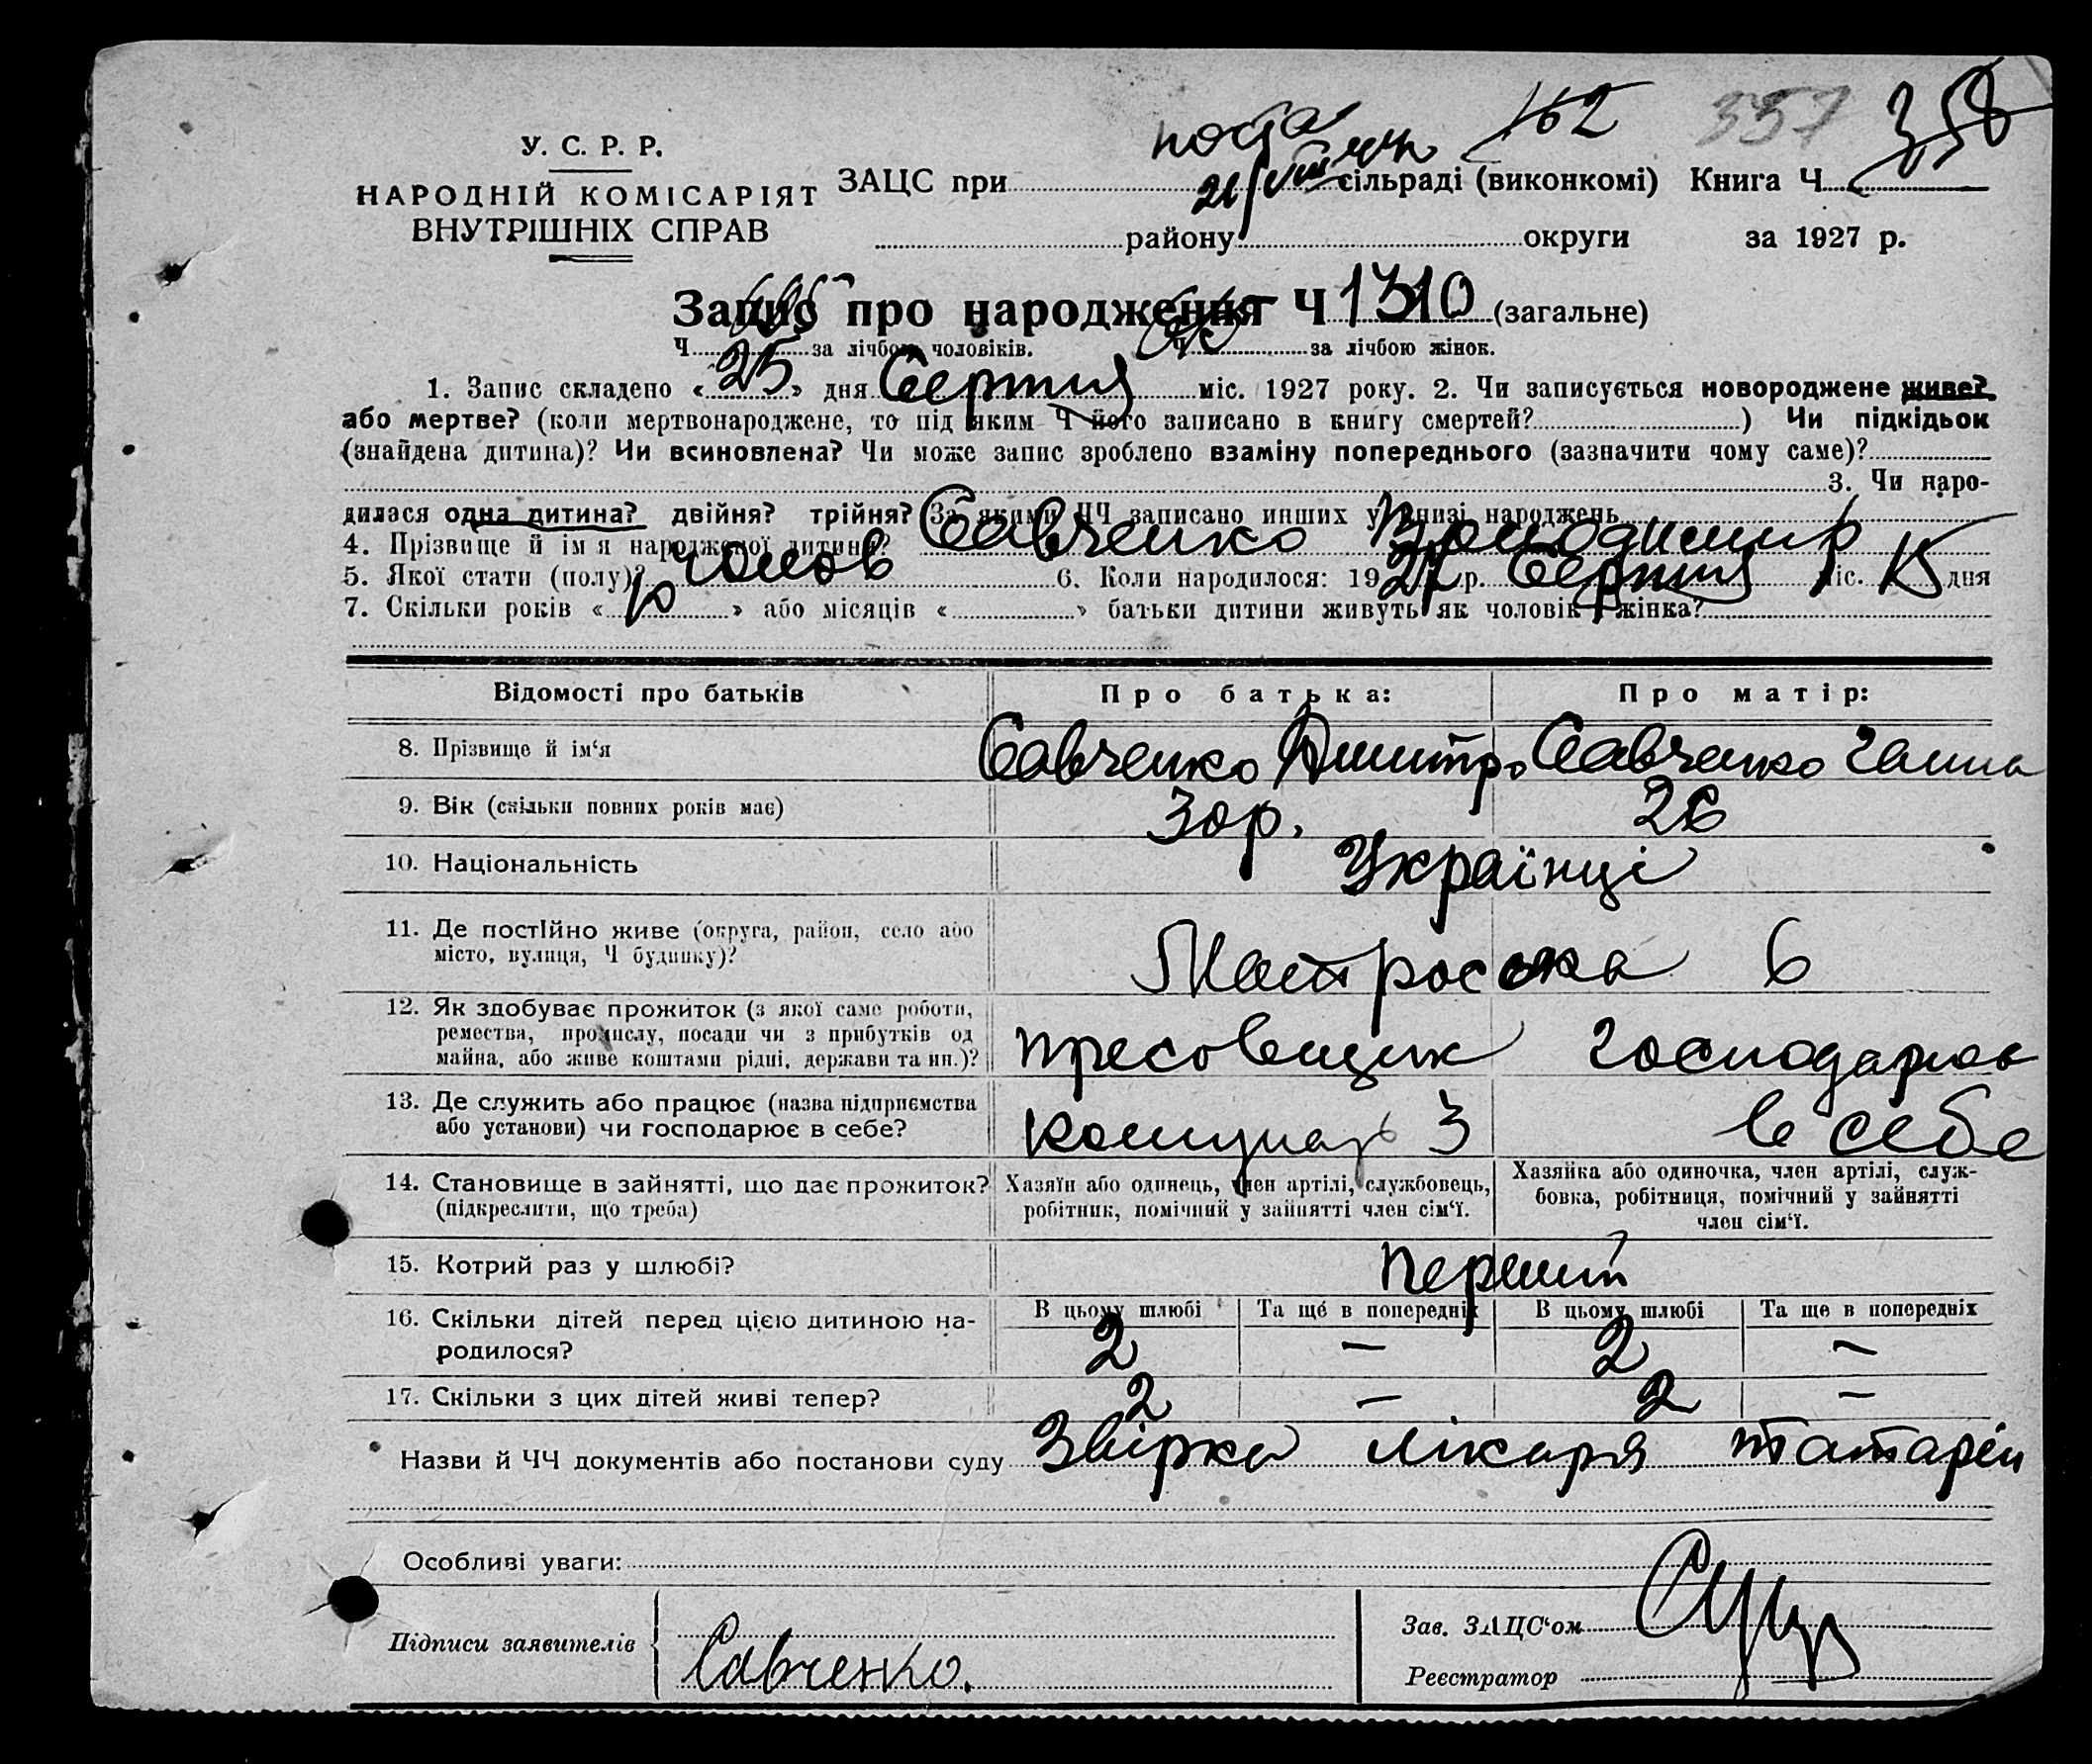 162 357 358
У. С. Р. Р.
НАРОДНІЙ КОМІСАРІЯТ
ВНУТРІШНІХ СПРАВ
ЗАЦС при 21/VIII сільраді (виконкомі) Книга Ч
району округи за 1927 р.
Запис про народження Ч 1310 (загальне)
Ч за лічбою чоловіків. Ч за лічбою жінок.
1. Запис складено «25» дня Серпня міс. 1927 року. 2. Чи записується новороджене живе?
або мертве? (коли мертвонароджене, то під яким Ч його записано в книгу смертей? ) Чи підкідьок
(знайдена дитина)? Чи всиновлена? Чи може запис зроблено взаміну попереднього (зазначити чому саме)?
3. Чи наро-
дилася одна дитина? двійня? трійня? За якими ЧЧ записано инших у книзі народжень
4. Прізвище й ім'я народженої дитини? Савченко Володимир
5. Якої стати (полу)? чолов 6. Коли народилося: 1927 р. Серпня міс. 15 дня
7. Скільки років «10» або місяців « » батьки дитини живуть як чоловік і жінка?
Відомості про батьків Про батька: Про матір:
8. Прізвище й ім'я Савченко Дмитро Савченко Ганна
9. Вік (скільки повних років має) 30 р. 26
10. Національність Українці
11. Де постійно живе (округа, район, село або
місто, вулиця, Ч будинку)? Матроська 6
12. Як здобуває прожиток (з якої саме роботи,
ремества, промислу, посади чи з прибутків од
майна, або живе коштами рідні, держави та ин.)? пресовщик господарює
13. Де служить або працює (назва підприємства
або установи) чи господарює в себе? Комунар З в себе
14. Становище в зайнятті, що дає прожиток?
(підкреслити, що треба)
Хазяїн або одинець, член артілі, службовець,
робітник, помічний у зайнятті член сім'ї.
Хазяйка або одиночка, член артілі, служ-
бовка, робітниця, помічний у зайнятті
член сім'ї.
15. Котрий раз у шлюбі? Перший
В цьому шлюбі Та ще в попередніх В цьому шлюбі Та ще в попередніх
16. Скільки дітей перед цією дитиною на-
родилося? 2 — 2 —
17. Скільки з цих дітей живі тепер? 2 — 2 —
Назви й ЧЧ документів або постанови суду Звірка лікаря
Особливі уваги:
Підписи заявителів Савченко.
Зав. ЗАЦС'ом
Реєстратор